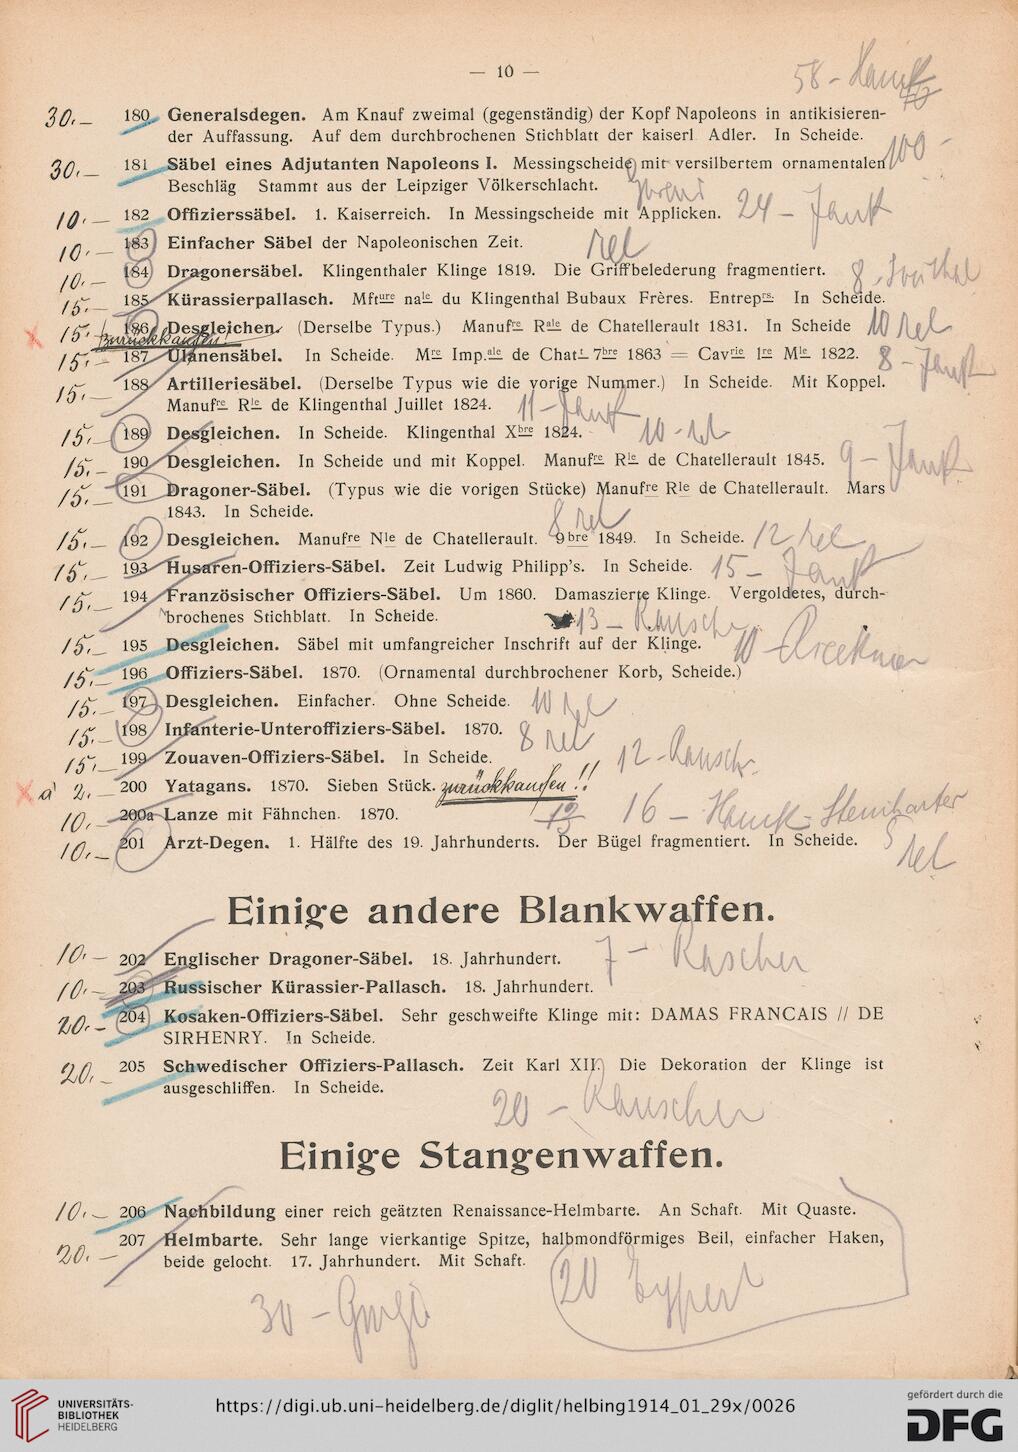 — 10 —
58 -
30.— 180 Generalsdegen. Am Knauf zweimal (gegenständig) der Kopf Napoleons in antikisieren-
der Auffassung. Auf dem durchbrochenen Stichblatt der kaiserl Adler. In Scheide.
30.— 181 Säbel eines Adjutanten Napoleons I. Messingscheide mit versilbertem ornamentalen 100 -
Beschläg Stammt aus der Leipziger Völkerschlacht.
10.— 182 Offizierssäbel. 1. Kaiserreich. In Messingscheide mit Applicken. 24 -
10.— 183 Einfacher Säbel der Napoleonischen Zeit. rel
10.— 184 Dragonersäbel. Klingenthaler Klinge 1819. Die Griffbelederung fragmentiert. 8 -
15.— 185 Kürassierpallasch. Mfture nale du Klingenthal Bubaux Frères. Entreprs. In Scheide.
x 15.— 186 Desgleichen. (Derselbe Typus.) Manufre Rale de Chatellerault 1831. In Scheide 10 rel
zurückkaufen!
15.— 187 Ulanensäbel. In Scheide. Mre Imp.ale de Chatt 7bre 1863 = Cavrie 1re Mle 1822. 8 -
15.— 188 Artilleriesäbel. (Derselbe Typus wie die vorige Nummer.) In Scheide. Mit Koppel.
Manufre Rle de Klingenthal Juillet 1824. 11 -
15.— 189 Desgleichen. In Scheide. Klingenthal Xbre 1824. 10 - rel
15.— 190 Desgleichen. In Scheide und mit Koppel. Manufre Rle de Chatellerault 1845. 9 -
15.— 191 Dragoner-Säbel. (Typus wie die vorigen Stücke) Manufre Rle de Chatellerault. Mars
1843. In Scheide. 8 rel
15.— 192 Desgleichen. Manufre Nle de Chatellerault. 9bre 1849. In Scheide. 12 rel
15.— 193 Husaren-Offiziers-Säbel. Zeit Ludwig Philipp's. In Scheide. 15 -
15.— 194 Französischer Offiziers-Säbel. Um 1860. Damaszierte Klinge. Vergoldetes, durch-
brochenes Stichblatt. In Scheide. 13 - Rauscher
15.— 195 Desgleichen. Säbel mit umfangreicher Inschrift auf der Klinge. 10 -
15.— 196 Offiziers-Säbel. 1870. (Ornamental durchbrochener Korb, Scheide.)
15.— 197 Desgleichen. Einfacher. Ohne Scheide. 10 rel
15.— 198 Infanterie-Unteroffiziers-Säbel. 1870. 8 rel
15.— 199 Zouaven-Offiziers-Säbel. In Scheide. 12 - Rausch.
x a 2.— 200 Yatagans. 1870. Sieben Stück. zurückkaufen!!
10.— 200a Lanze mit Fähnchen. 1870. 16 -
10.— 201 Arzt-Degen. 1. Hälfte des 19. Jahrhunderts. Der Bügel fragmentiert. In Scheide. 8 rel
Einige andere Blankwaffen.
10.— 202 Englischer Dragoner-Säbel. 18. Jahrhundert. 7 - Rascher
10.— 203 Russischer Kürassier-Pallasch. 18. Jahrhundert.
20.— 204 Kosaken-Offiziers-Säbel. Sehr geschweifte Klinge mit: DAMAS FRANCAIS // DE
SIRHENRY. In Scheide.
20.— 205 Schwedischer Offiziers-Pallasch. Zeit Karl XII. Die Dekoration der Klinge ist
ausgeschliffen. In Scheide.
20 - Rauscher
Einige Stangenwaffen.
10.— 206 Nachbildung einer reich geätzten Renaissance-Helmbarte. An Schaft. Mit Quaste.
20.— 207 Helmbarte. Sehr lange vierkantige Spitze, halbmondförmiges Beil, einfacher Haken,
beide gelocht. 17. Jahrhundert. Mit Schaft.
20
30 -
UNIVERSITÄTS-
BIBLIOTHEK
HEIDELBERG
https://digi.ub.uni-heidelberg.de/diglit/helbing1914_01_29x/0026
gefördert durch die
DFG